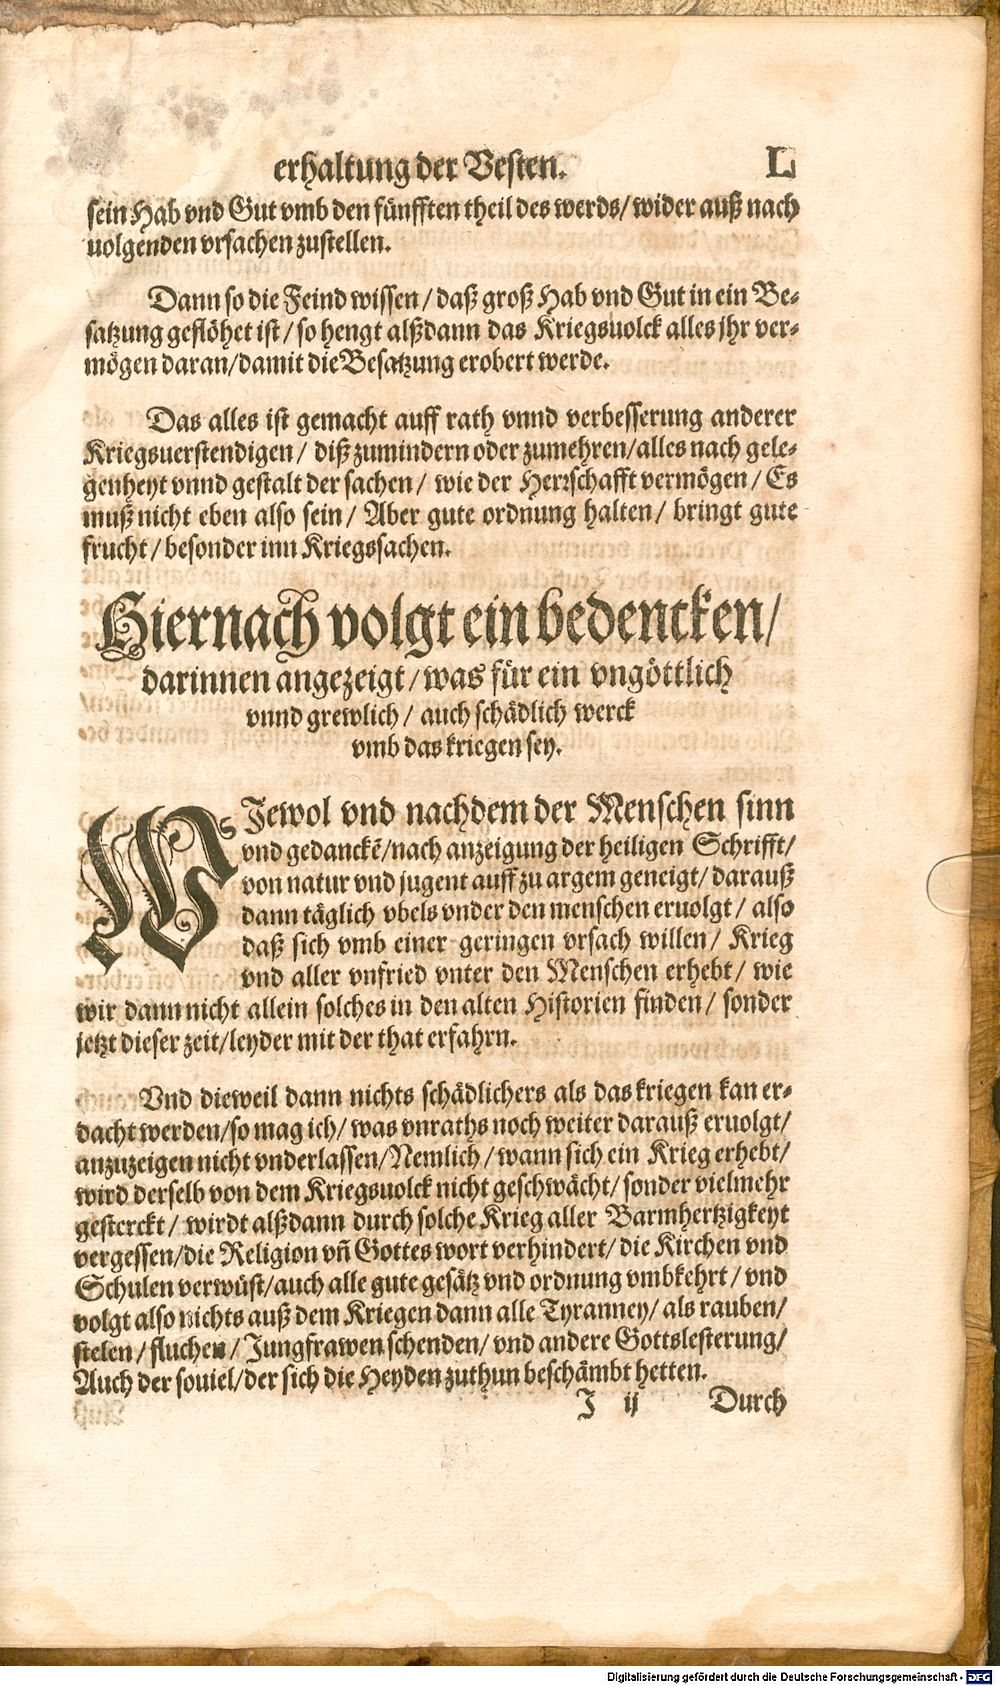 erhaltung der Vesten. L
sein Hab vnd Gut vmb den fünfften theil des werds/ wider auß nach
uolgenden vrsachen zustellen.
Dann so die Feind wissen/ daß groß Hab vnd Gut in ein Be-
satzung geflöhet ist/ so hengt alßdann das Kriegsuolck alles jhr ver-
mögen daran/ damit die Besatzung erobert werde.
Das alles ist gemacht auff rath vnnd verbesserung anderer
Kriegsuerstendigen/ diß zumindern oder zumehren/ alles nach gele-
genheyt vnnd gestalt der sachen/ wie der Herrschafft vermögen/ Es
muß nicht eben also sein/ Aber gute ordnung halten/ bringt gute
frucht/ besonder inn Kriegssachen.
Hiernach volgt ein bedencken/
darinnen angezeigt/ was für ein vngöttlich
vnnd grewlich/ auch schädlich werck
vmb das kriegen sey.
WJewol vnd nachdem der Menschen sinn
vnd gedanckẽ/ nach anzeigung der heiligen Schrifft/
von natur vnd jugent auff zu argem geneigt/ darauß
dann täglich vbels vnder den menschen eruolgt/ also
daß sich vmb einer geringen vrsach willen/ Krieg
vnd aller vnfried vnter den Menschen erhebt/ wie
wir dann nicht allein solches in den alten Historien finden/ sonder
jetzt dieser zeit/ leyder mit der that erfahrn.
Vnd dieweil dann nichts schädlichers als das kriegen kan er-
dacht werden/ so mag ich/ was vnraths noch weiter darauß eruolgt/
anzuzeigen nicht vnderlassen/ Nemlich/ wann sich ein Krieg erhebt/
wird derselb von dem Kriegsuolck nicht geschwächt/ sonder vielmehr
gesterckt/ wirdt alßdann durch solche Krieg aller Barmhertzigkeyt
vergessen/ die Religion vñ Gottes wort verhindert/ die Kirchen vnd
Schulen verwüst/ auch alle gute gesätz vnd ordnung vmbkehrt/ vnd
volgt also nichts auß dem Kriegen dann alle Tyranney/ als rauben/
stelen/ fluchen/ Jungfrawen schenden/ vnd andere Gottslesterung/
Auch der souiel/ der sich die Heyden zuthun beschämbt hetten.
J ij Durch
Digitalisierung gefördert durch die Deutsche Forschungsgemeinschaft - DFG